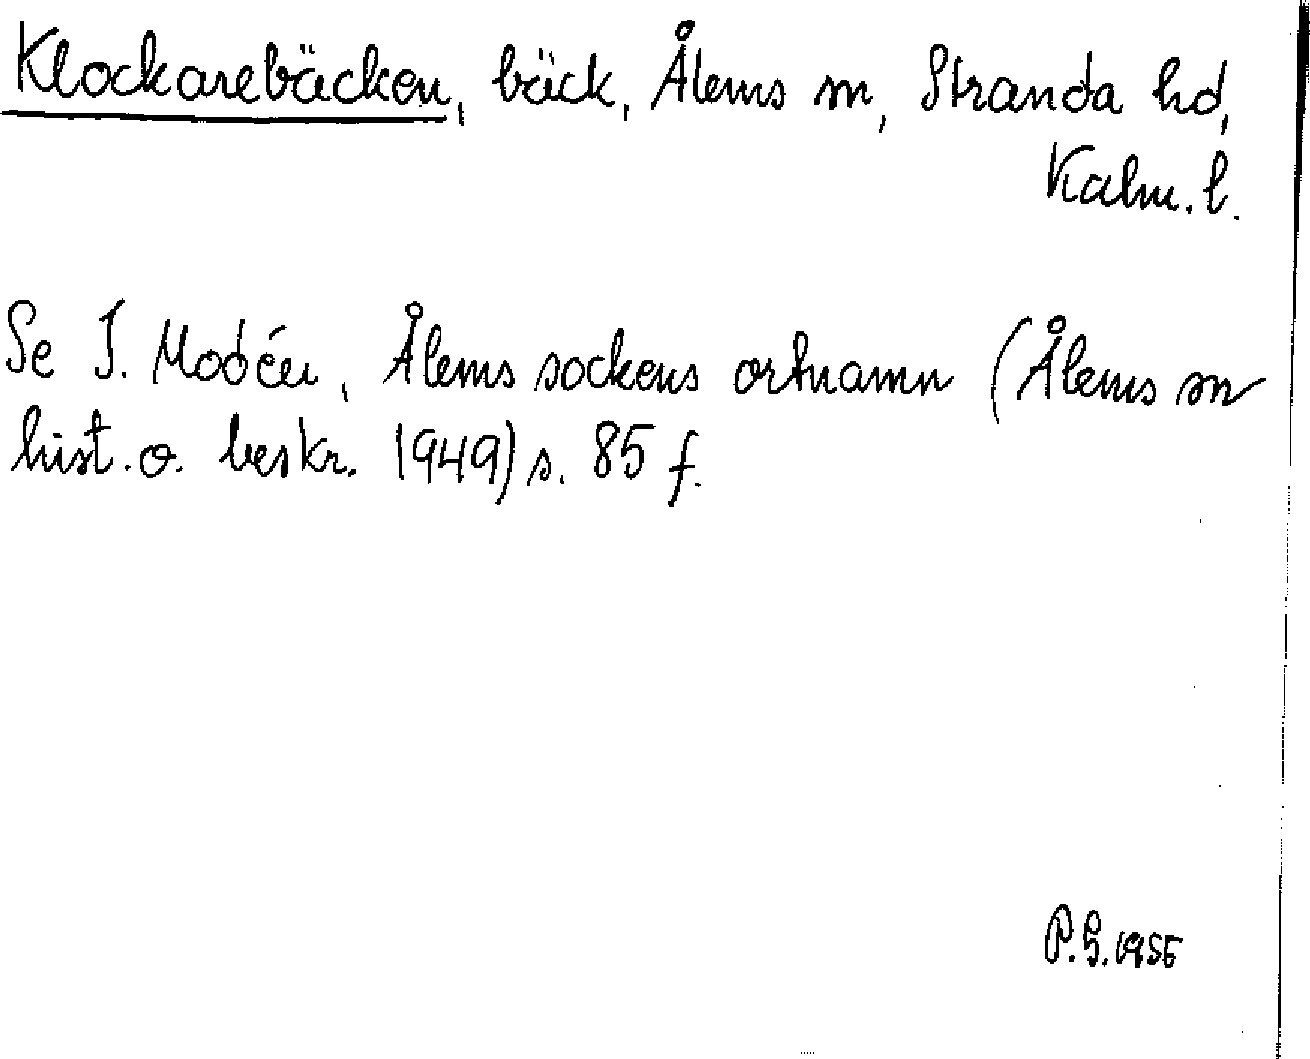 Klockarebäcken, bäck, Ålems sn, Stranda hd,
Kalm. l.
Se I. Modéer, Ålems sockens ortnamn (Ålems sn
hist. o. beskr. 1949) s. 85 f.
P.G. 1955